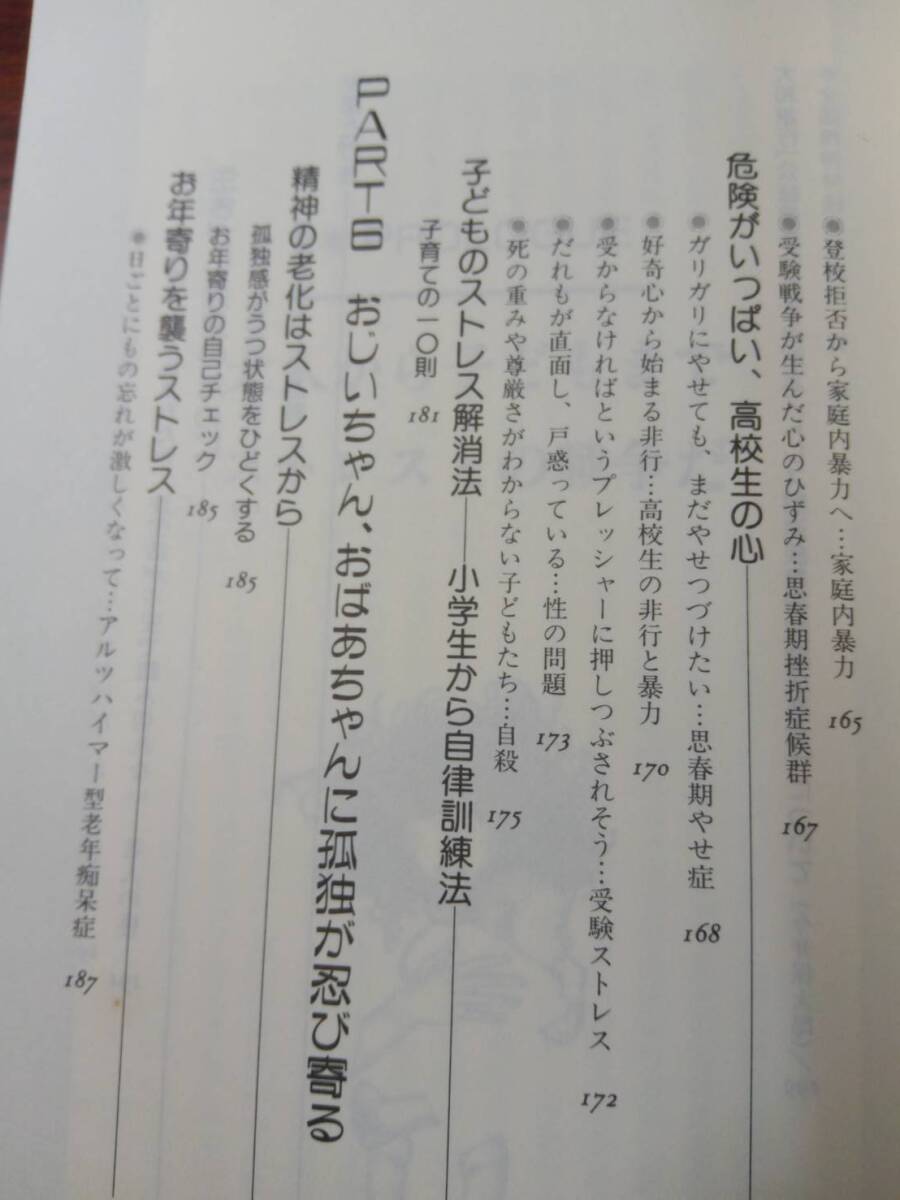 ●登校拒否から家庭内暴力へ…家庭内暴力 165
●受験戦争が生んだ心のひずみ…思春期挫折症候群 167
危険がいっぱい、高校生の心
●ガリガリにやせても、まだやせつづけたい…思春期やせ症 168
●好奇心から始まる非行…高校生の非行と暴力 170
●受からなければというプレッシャーに押しつぶされそう…受験ストレス 172
●だれもが直面し、戸惑っている…性の問題 173
●死の重みや尊厳さがわからない子どもたち…自殺 175
子どものストレス解消法──小学生から自律訓練法
子育ての一〇則 181
PART6 おじいちゃん、おばあちゃんに孤独が忍び寄る
精神の老化はストレスから
孤独感がうつ状態をひどくする 185
お年寄りの自己チェック 185
お年寄りを襲うストレス
●日ごとにもの忘れが激しくなって…アルツハイマー型老年痴呆症 187